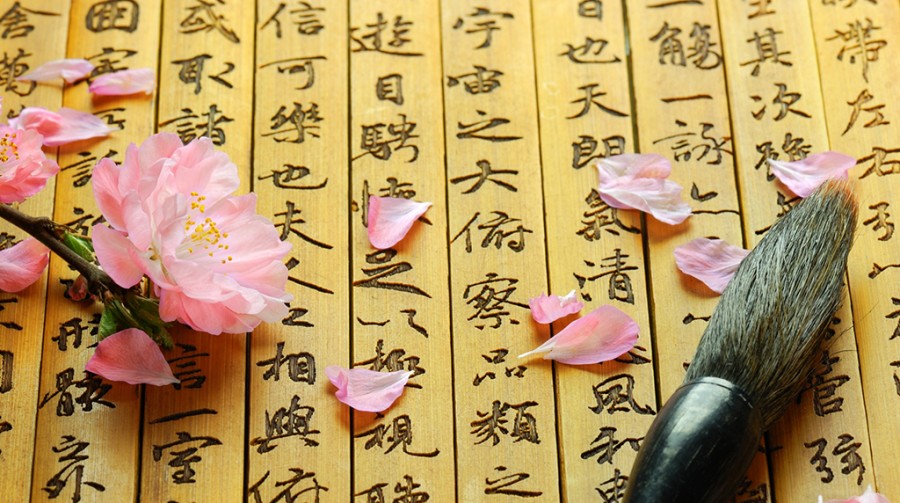 帶左右引
其次雖管弦
一觴一詠
日也天朗氣清風和
宇宙之大俯察品類之
遊目騁懷足以極視
信可樂也夫人之相與俯
或取諸言一室
因寄形骸
舍萬